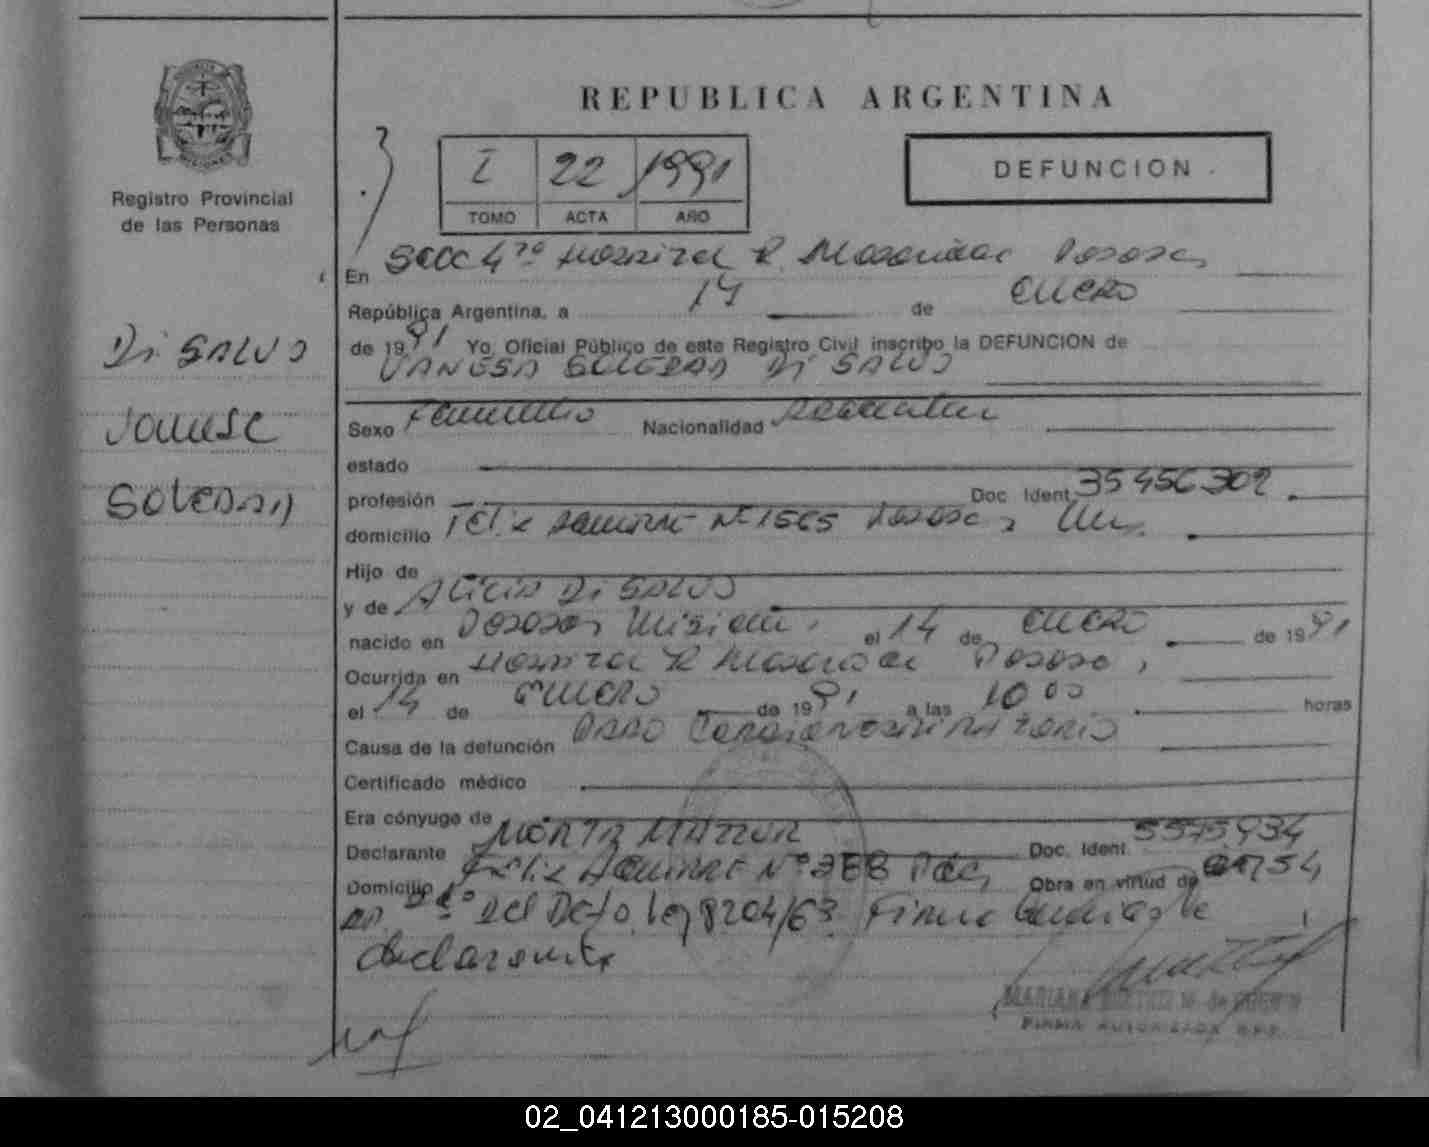 REPUBLICA ARGENTINA
I 22 1991
TOMO ACTA AÑO
DEFUNCION
Registro Provincial
de las Personas
Di SALVO
Vanesa
SOLEDAD
En Secc 4ta Hospital R. Madariaga Posadas
República Argentina, a 14 de enero
de 1991 Yo, Oficial Público de este Registro Civil inscribo la DEFUNCION de
VANESA SOLEDAD Di SALVO
Sexo Femenino Nacionalidad Argentina
estado
profesión Doc. Ident. 35456302
domicilio Félix Aguirre Nº 1565 Posadas,
Hijo de
y de ALICIA Di SALVO
nacido en Posadas Misiones, el 14 de enero de 1991
Ocurrida en Hospital R Madariaga Posadas,
el 14 de enero de 1991 a las 10 00 horas
Causa de la defunción PARO Cardiorespiratorio
Certificado médico
Era cónyuge de
Declarante Doc. Ident.
Domicilio Félix Aguirre Nº Pdas, Obra en virtud de
del Dcto. Ley 8204/63. Firma
declarante
MARIANA
FIRMA AUTORIZADA
02_041213000185-015208